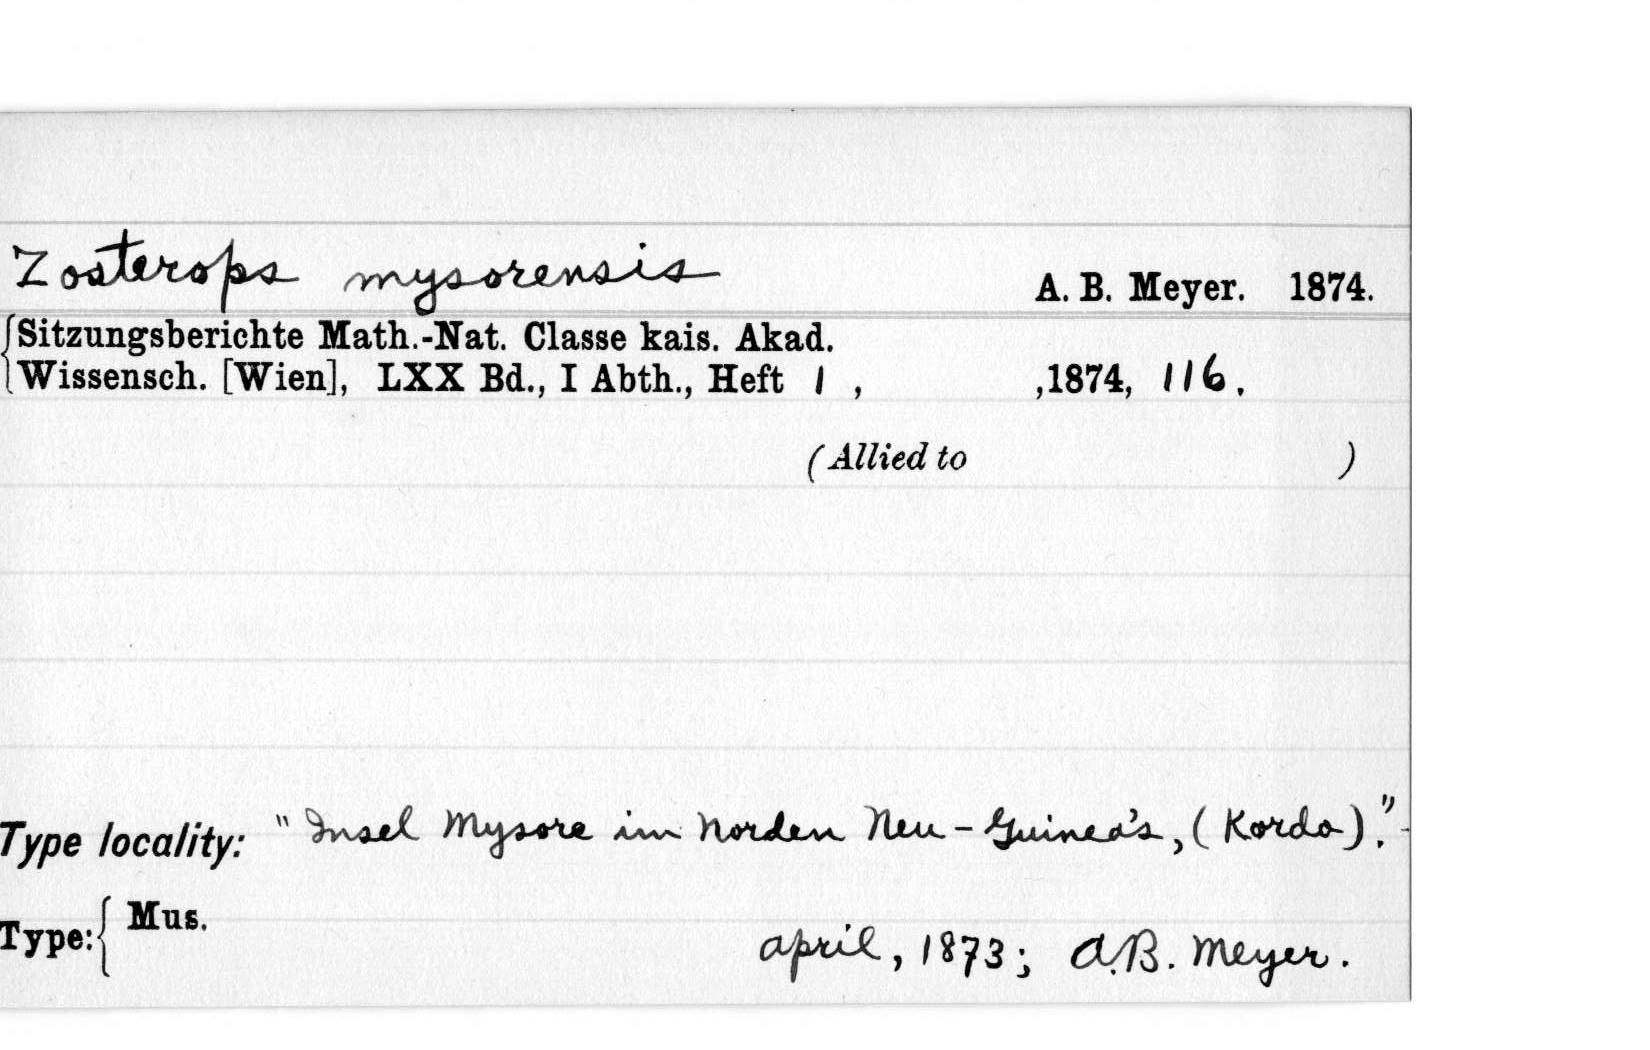 Zosterops mysorensis A. B. Meyer. 1874.
Sitzungsberichte Math.-Nat. Classe kais. Akad.
Wissensch. [Wien], LXX Bd., I Abth., Heft 1 , ,1874, 116.
(Allied to )
Type locality: "Insel Mysore im Norden Neu-Guinea's, (Kordo)."
Type: Mus.
April, 1873; A.B. Meyer.